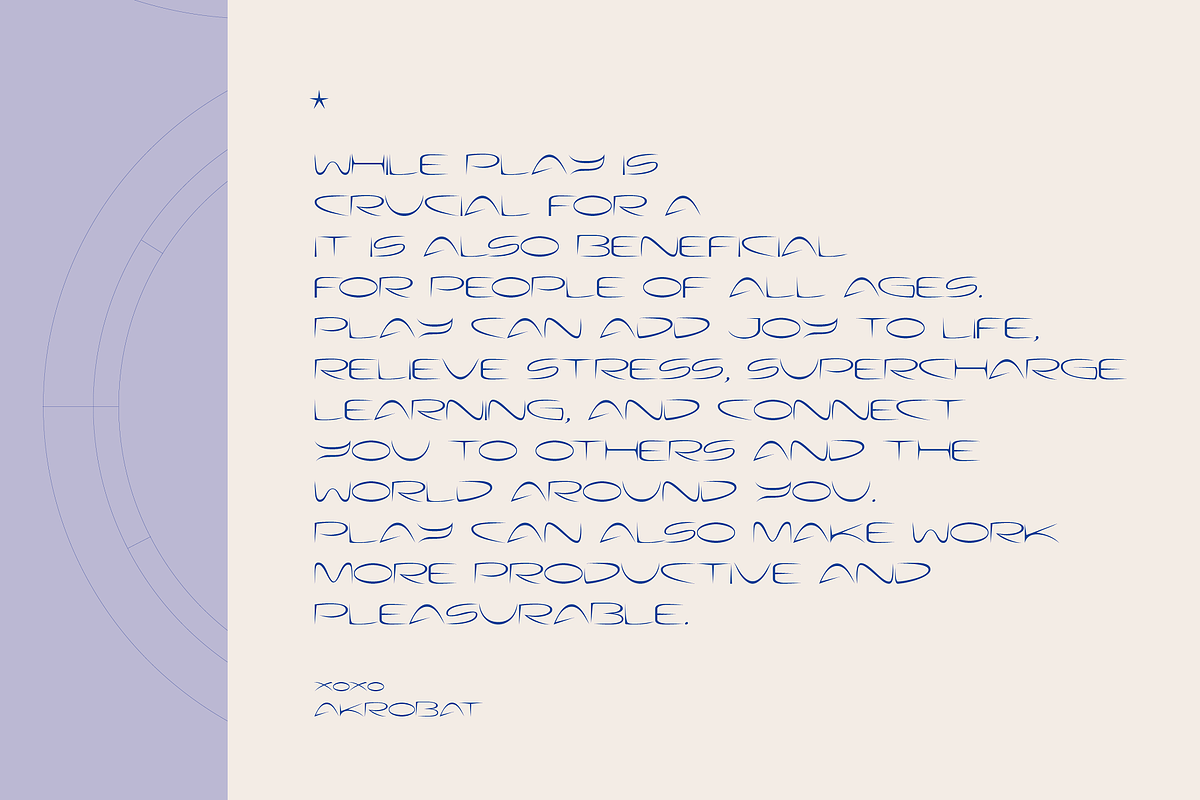 *
WHILE PLAY IS
CRUCIAL FOR A
IT IS ALSO BENEFICIAL
FOR PEOPLE OF ALL AGES.
PLAY CAN ADD JOY TO LIFE,
RELIEVE STRESS, SUPERCHARGE
LEARNING, AND CONNECT
YOU TO OTHERS AND THE
WORLD AROUND YOU.
PLAY CAN ALSO MAKE WORK
MORE PRODUCTIVE AND
PLEASURABLE.
XOXO
AKROBAT